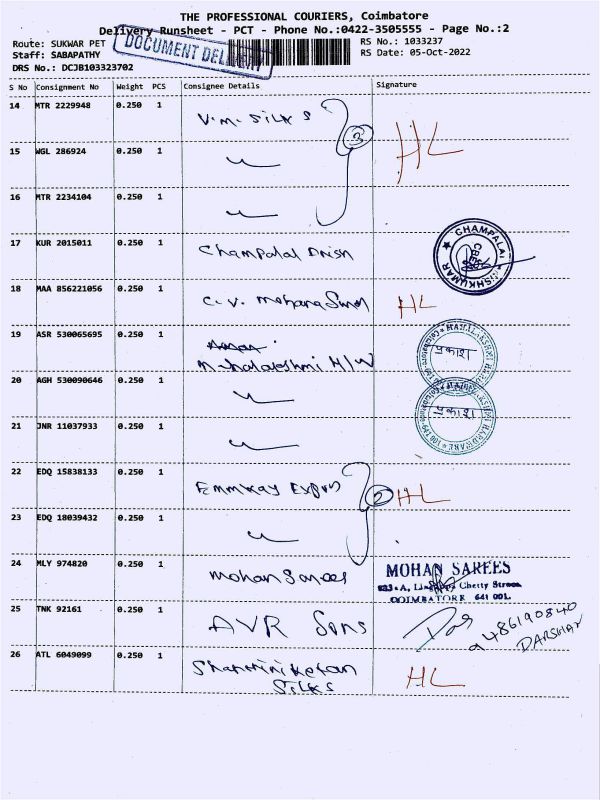 THE PROFESSIONAL COURIERS, Coimbatore
Delivery Runsheet - PCT - Phone No.:0422-3505555 - Page No.:2
Route: SUKWAR PET
RS No.: 1033237
Staff: SABAPATHY
RS Date: 05-Oct-2022
DRS No.: DCJB103323702
DOCUMENT DELIVERY
S No Consignment No Weight PCS Consignee Details Signature
14 MTR 2229948 0.250 1 V.M. SILKS 3 HL
15 WGL 286924 0.250 1
16 MTR 2234104 0.250 1
17 KUR 2015011 0.250 1 Champalal CHAMPALAL
18 MAA 856221056 0.250 1 C.V. HL
19 ASR 530065695 0.250 1 Mahalakshmi H/W प्रकाश
20 AGH 530090646 0.250 1 प्रकाश
21 JNR 11037933 0.250 1
22 EDQ 15838133 0.250 1 Emmkay 2 HL
23 EDQ 18039432 0.250 1
24 MLY 974820 0.250 1 mohan Sarees MOHAN SAREES
Chetty Street
COIMBATORE 641 001.
25 TNK 92161 0.250 1 AVR Sons 9486190840
DARSHAN
26 ATL 6049099 0.250 1 Shantiniketan HL
SILKS